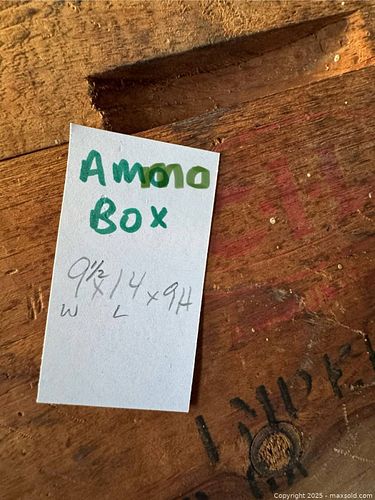 Ammo
Box
9½ x 14 x 9H
W L
Copyright 2025 - maxsold.com